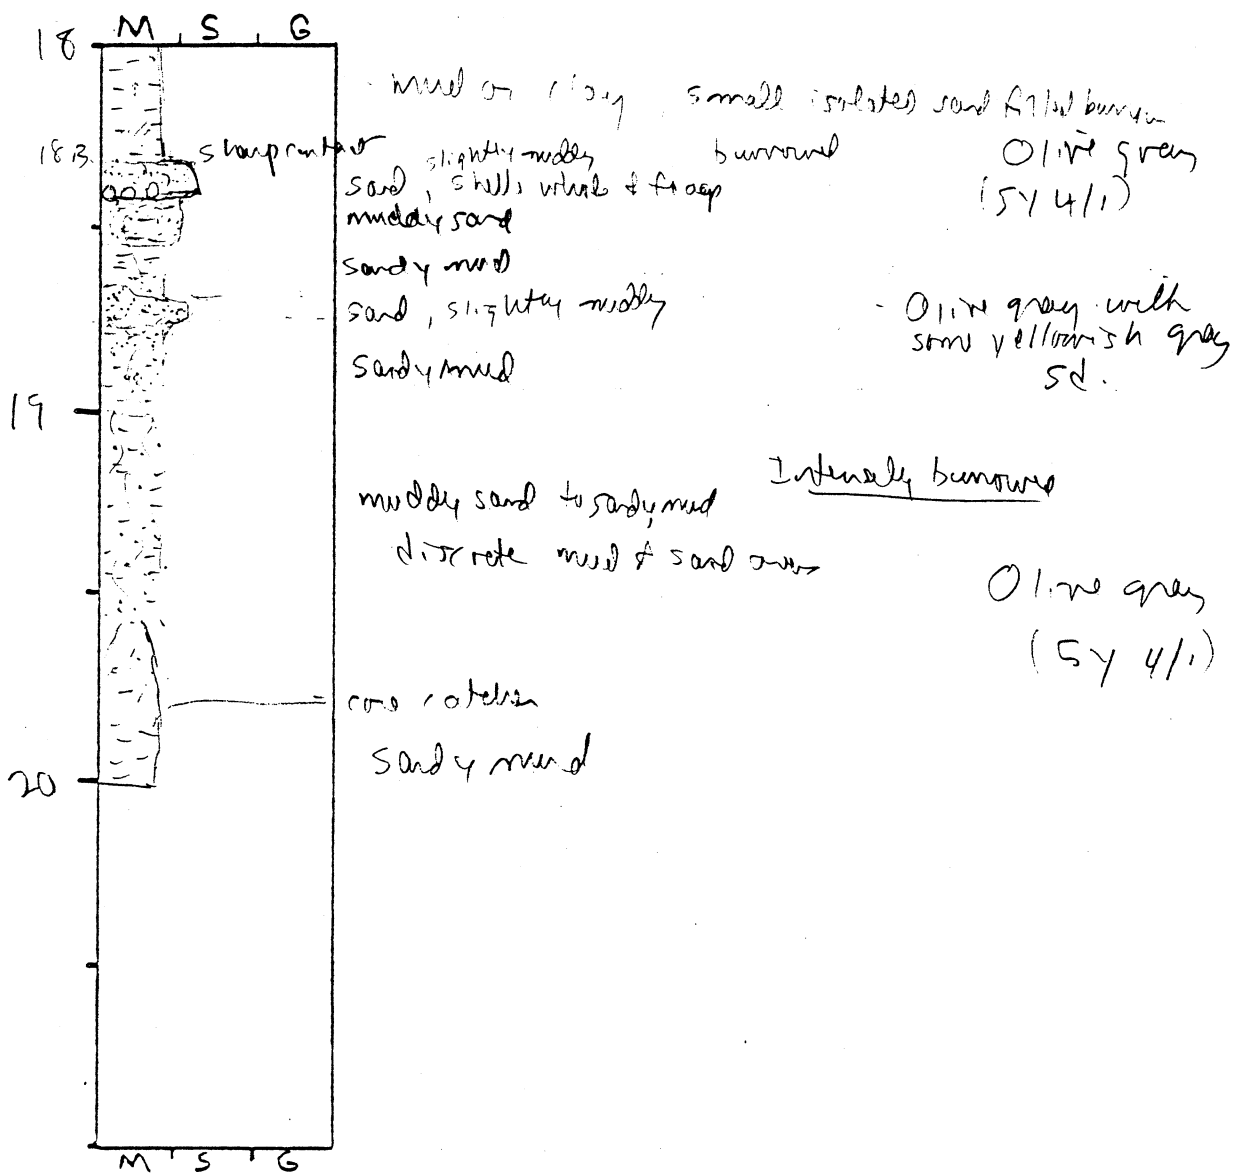 M S G
18
mud or clay, small isolated sand filled burrow
18.3 sharp contact
slightly muddy burrowed Olive gray
sand, shells whole & frags (5Y 4/1)
muddy sand
sandy mud
sand, slightly muddy - Olive gray with
some yellowish gray
sd.
sandy mud
19
Intensely burrowed
muddy sand to sandy mud
discrete mud & sand areas
Olive gray
(5Y 4/1)
core catcher
sandy mud
20
M S G